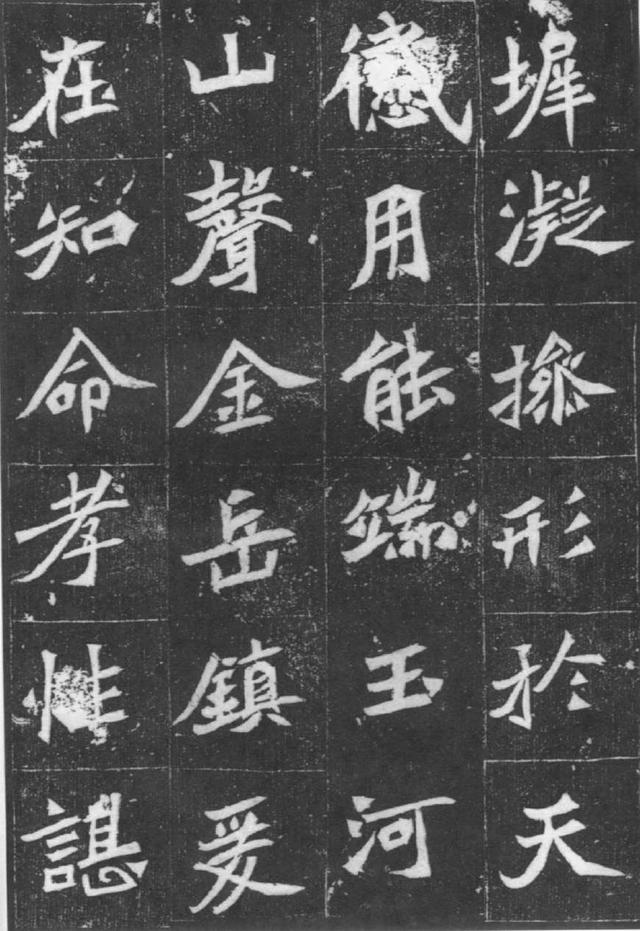 墀凝操形於天
用能端玉河
山聲金岳鎮爰
在知命孝性諶